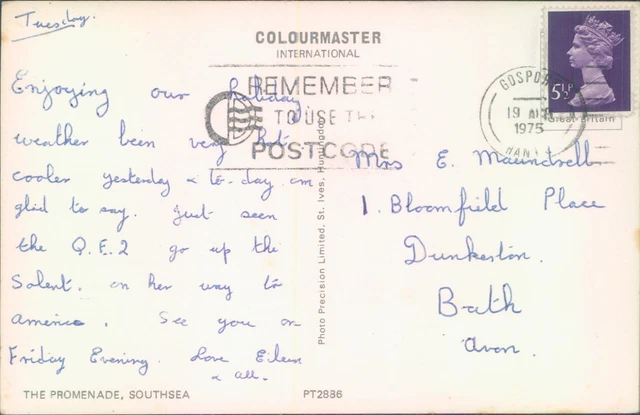 Tuesday.
COLOURMASTER
INTERNATIONAL
Enjoying our holiday
weather been very hot
cooler yesterday & to-day am
glad to say. Just seen
the Q.E.2 go up the
Solent. on her way to
America. See you on
Friday Evening. Love Eileen
& all.
REMEMBER
TO USE THE
POSTCODE
GOSPOR
19 AU
1975
HANT
5½P
Great Britain
Mrs E. Maundrell
1. Bloomfield Place
Dunkerton.
Bath
Avon.
Photo Precision Limited, St. Ives, Huntingdon
THE PROMENADE, SOUTHSEA
PT2886